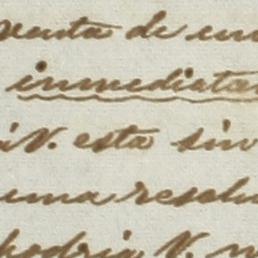 venta de
inmediata
V. esta sin
una resolu
podria V.